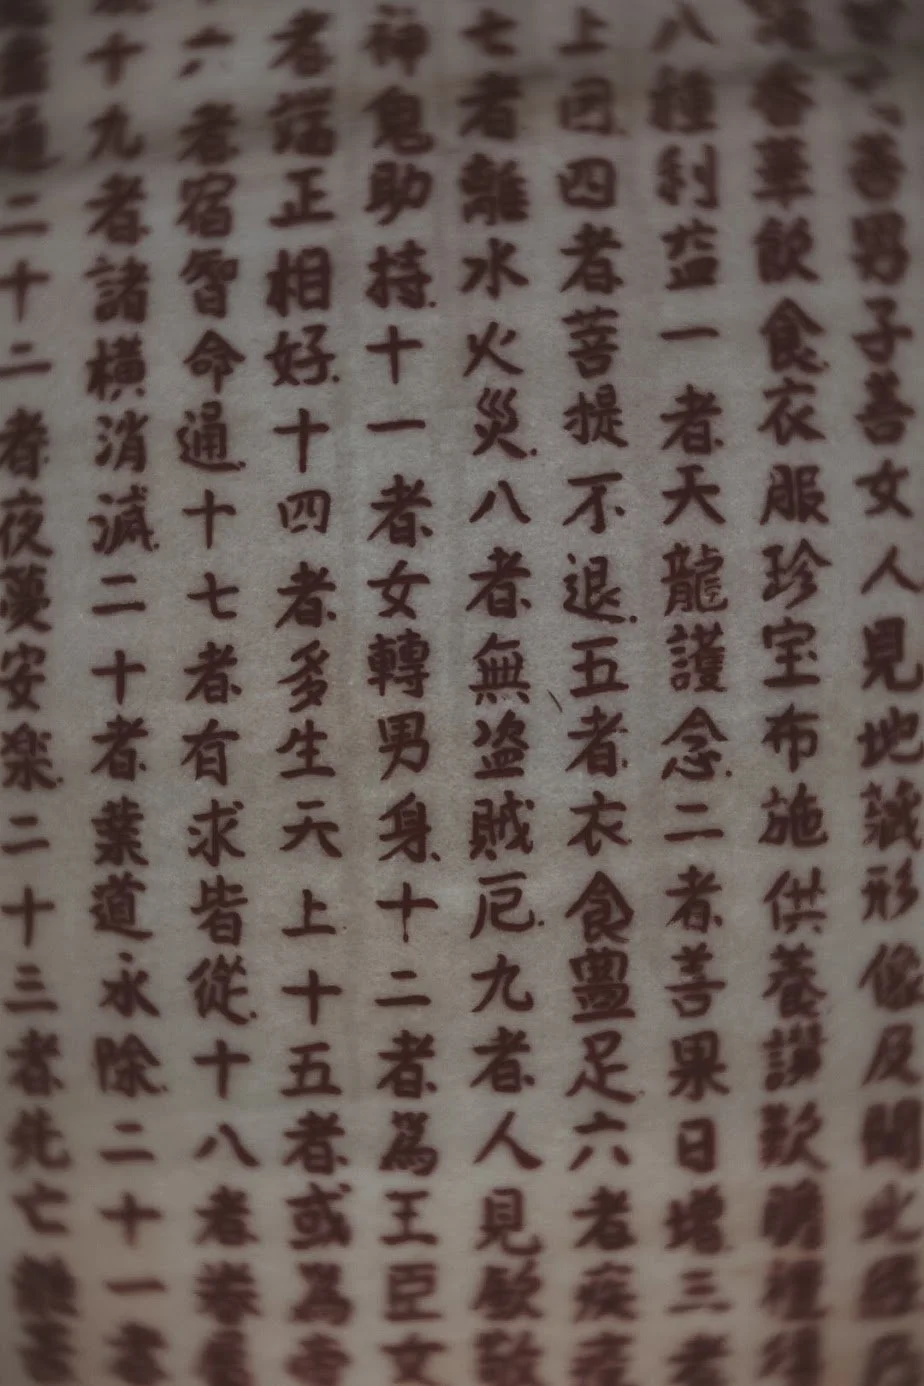 善男子善女人見地蔵形像及聞此經乃
香華飲食衣服珍宝布施供養讃歎瞻禮得
八種利益一者天龍護念二者善果日增三者
上因四者菩提不退五者衣食豊足六者疾疫
七者離水火災八者無盗賊厄九者人見欽敬
神鬼助持十一者女轉男身十二者為王臣女
者端正相好十四者多生天上十五者或為帝
六者宿智命通十七者有求皆從十八者眷属
十九者諸横消滅二十者業道永除二十一者
通二十二者夜夢安楽二十三者先亡離苦